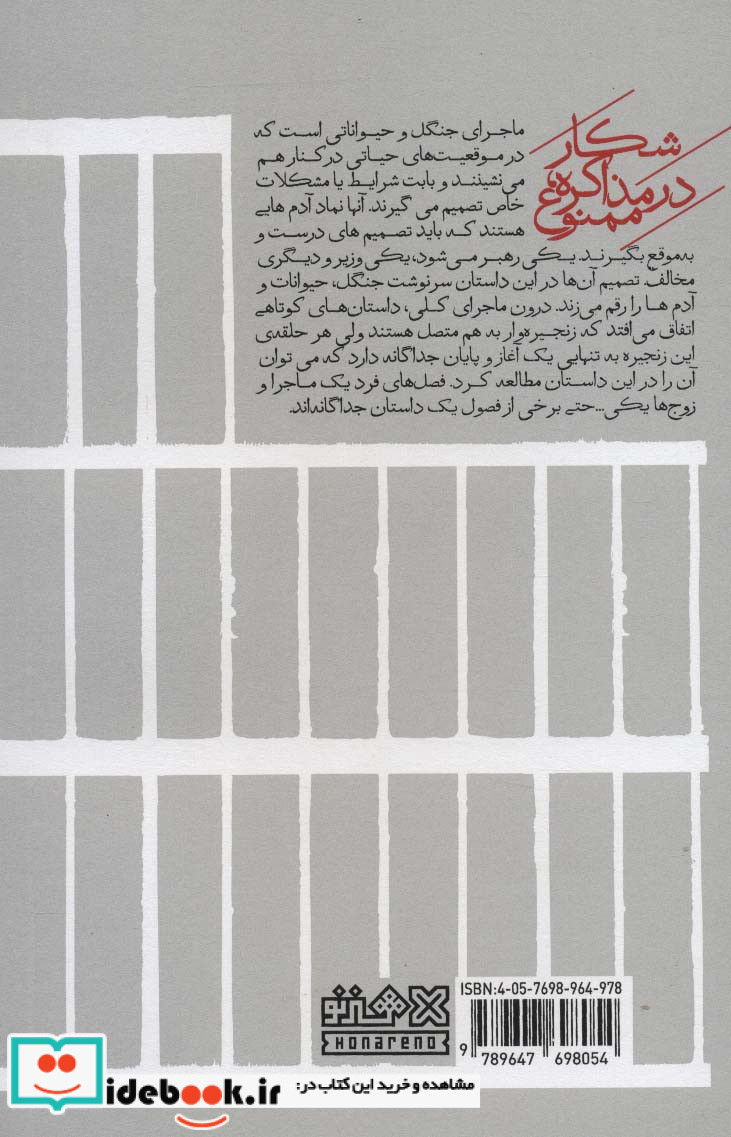 شکار
در مذاکره،
ممنوع
ماجرای جنگل و حیواناتی است که
در موقعیت‌های حیاتی در کنار هم
می‌نشینند و بابت شرایط یا مشکلات
خاص تصمیم می گیرند. آنها نماد آدم هایی
هستند که باید تصمیم های درست و
به‌موقع بگیرند. یکی رهبر می‌شود، یکی وزیر و دیگری
مخالف. تصمیم آن‌ها در این داستان سرنوشت جنگل، حیوانات و
آدم ها را رقم می‌زند. درون ماجرای کلی، داستان‌های کوتاهی
اتفاق می‌افتد که زنجیره‌وار به هم متصل هستند ولی هر حلقه‌ی
این زنجیره به تنهایی یک آغاز و پایان جداگانه دارد که می توان
آن را در این داستان مطالعه کرد. فصل‌های فرد یک ماجرا و
زوج‌ها یکی...حتی برخی از فصول یک داستان جداگانه‌اند.
ISBN:4-05-7698-964-978
9 789647 698054
هنرنو
HONARENO
مشاهده و خرید این کتاب در:
idebook.ir